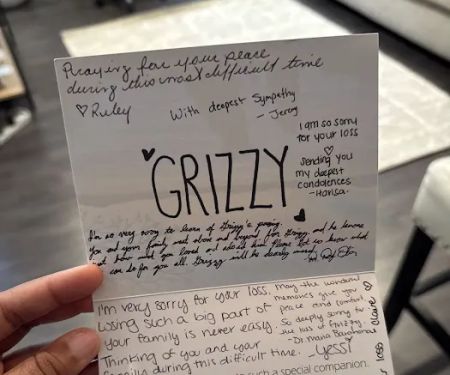 Praying for your peace
during this most difficult time
♡ Ruley
With deepest Sympathy
- Jeremy
I am so sorry
for your loss
♡
Sending you
my deepest
condolences
-Harisa.
GRIZZY
I'm so very sorry to learn of Grizzy's passing.
You and your family went above and beyond for Grizzy, and he knows
how much you loved and
Please let us know what
we can do for you all. Grizzy will be dearly missed
I'm very sorry for your loss.
Losing such a big part of
your family is never easy.
Thinking of you and your
family during this difficult time. -Yessi
May the wonderful
memories give you
peace and comfort
So deeply sorry for
the loss of Grizzy.
-Dr. Maria
Claire
such a special companion.